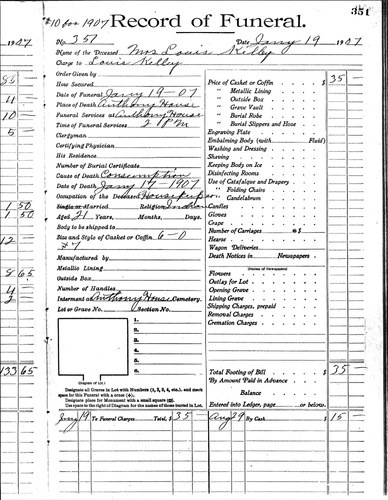 351
10 for 1907 Record of Funeral.
No. 357 Date Jany 19 1907
Name of the Deceased Mrs Louis Kelly
Charge to Louis Kelly
Order Given by
How Secured
Date of Funeral Jany 19-07
Place of Death Anthony House
Funeral Services at Anthony House
Time of Funeral Services 2 P M
Clergyman
Certifying Physician
His Residence
Number of Burial Certificate
Cause of Death Consumption
Date of Death Jany 17-1907
Occupation of the Deceased Housekeeper
Single or Married Religion Indian
Aged 21 Years, Months, Days.
Body to be shipped to
Size and Style of Casket or Coffin 6-0
#7
Manufactured by
Metallic Lining
Outside Box
Number of Handles
Interment at Anthony House Cemetery.
Lot or Grave No. Section No.
1.
2.
3.
4.
5.
6.
(Diagram of Lot.)
Designate all Graves in Lot with Numbers (1, 2, 3, 4, etc.), and mark
space for this Funeral with a cross (+).
Designate place for Monument with a small square (□).
Use space to the right of Diagram for the names of those buried in Lot.
Jany 19 To Funeral Charges Total, $ 35 -
Price of Casket or Coffin $ 35
" Metallic Lining
" Outside Box
" Grave Vault
" Burial Robe
" Burial Slippers and Hose
Engraving Plate
Embalming Body (with Fluid)
Washing and Dressing
Shaving
Keeping Body on Ice
Disinfecting Rooms
Use of Catafalque and Drapery
" Folding Chairs
" Candelabrum
Candles
Gloves
Crape
Number of Carriages @ $
Hearse
Wagon Deliveries
Death Notices in Newspapers
(Names of Newspapers)
Flowers
Outlay for Lot
Opening Grave
Lining Grave
Shipping Charges, prepaid
Removal Charges
Cremation Charges
Total Footing of Bill $ 35 -
By Amount Paid in Advance
Balance
Entered into Ledger, page or below.
Aug 29 By Cash $ 15 -
1907
11
10
5
1 50
1 50
12
8 65
4
2
133 65